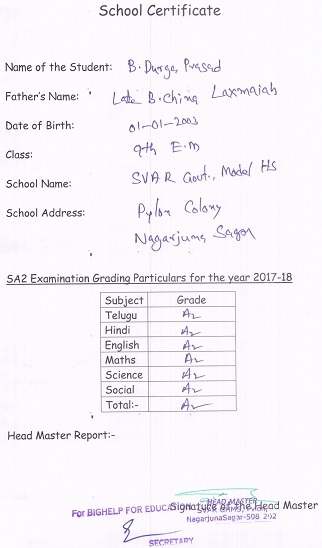 School Certificate
Name of the Student: B. Durga Prasad
Father's Name: Late B. China Laxmaiah
Date of Birth: 01-01-2003
Class: 9th E.M
School Name: SVAR Govt., Model HS
School Address: Pylon Colony
Nagarjuna Sagar
SA2 Examination Grading Particulars for the year 2017-18
Subject Grade
Telugu A2
Hindi A2
English A2
Maths A2
Science A2
Social A2
Total:- A2
Head Master Report:-
HEAD MASTER
For BIGHELP FOR EDUCATION Signature of the Head Master
NagarjunaSagar-508 202
SECRETARY